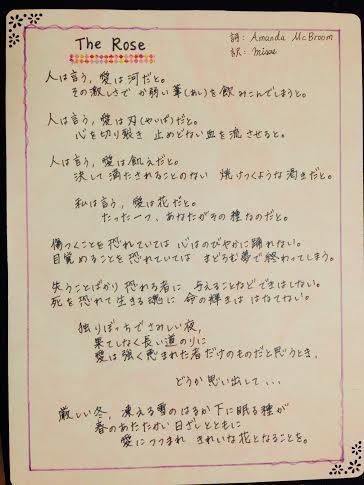 The Rose
詞: Amanda McBroom
訳: misae
人は言う, 愛は河だと。
その激しさで か弱い葦(あし)を飲みこんでしまうと。
人は言う, 愛は刃(やいば)だと。
心を切り裂き 止めどない血を流させると。
人は言う, 愛は飢えだと。
決して満たされることのない 焼けつくような渇きだと。
私は言う, 愛は花だと。
たった一つ, あなたがその種なのだと。
傷つくことを恐れていては 心はのびやかに踊れない。
目覚めることを恐れていては まどろむ夢で終わってしまう。
失うことばかり恐れる者に 与えることなどできはしない。
死を恐れて生きる魂に 命の輝きは はなてない。
独りぼっちでさみしい夜,
果てしなく長い道のりに
愛は強く恵まれた者だけのものだと思うとき,
どうか思い出して...
厳しい冬, 凍える雪のはるか下に眠る種が
春のあたたかい日ざしとともに
愛につつまれ きれいな花となることを。